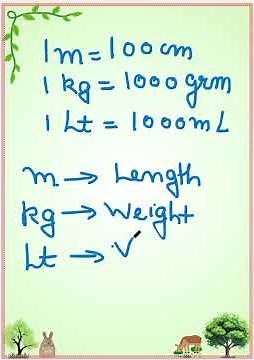 1 m = 100 cm
1 kg = 1000 grm
1 Lt = 1000 mL
m → Length
kg → Weight
Lt → V